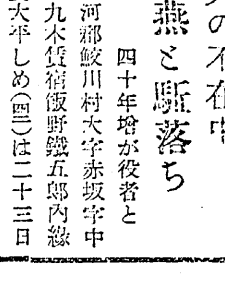 の不在
燕と駈落ち
四十年增が役者と
河郡鮫川村大字赤坂字中
九木賃宿飯野鐵五郎內緣
大平しめ(四二)は二十三日